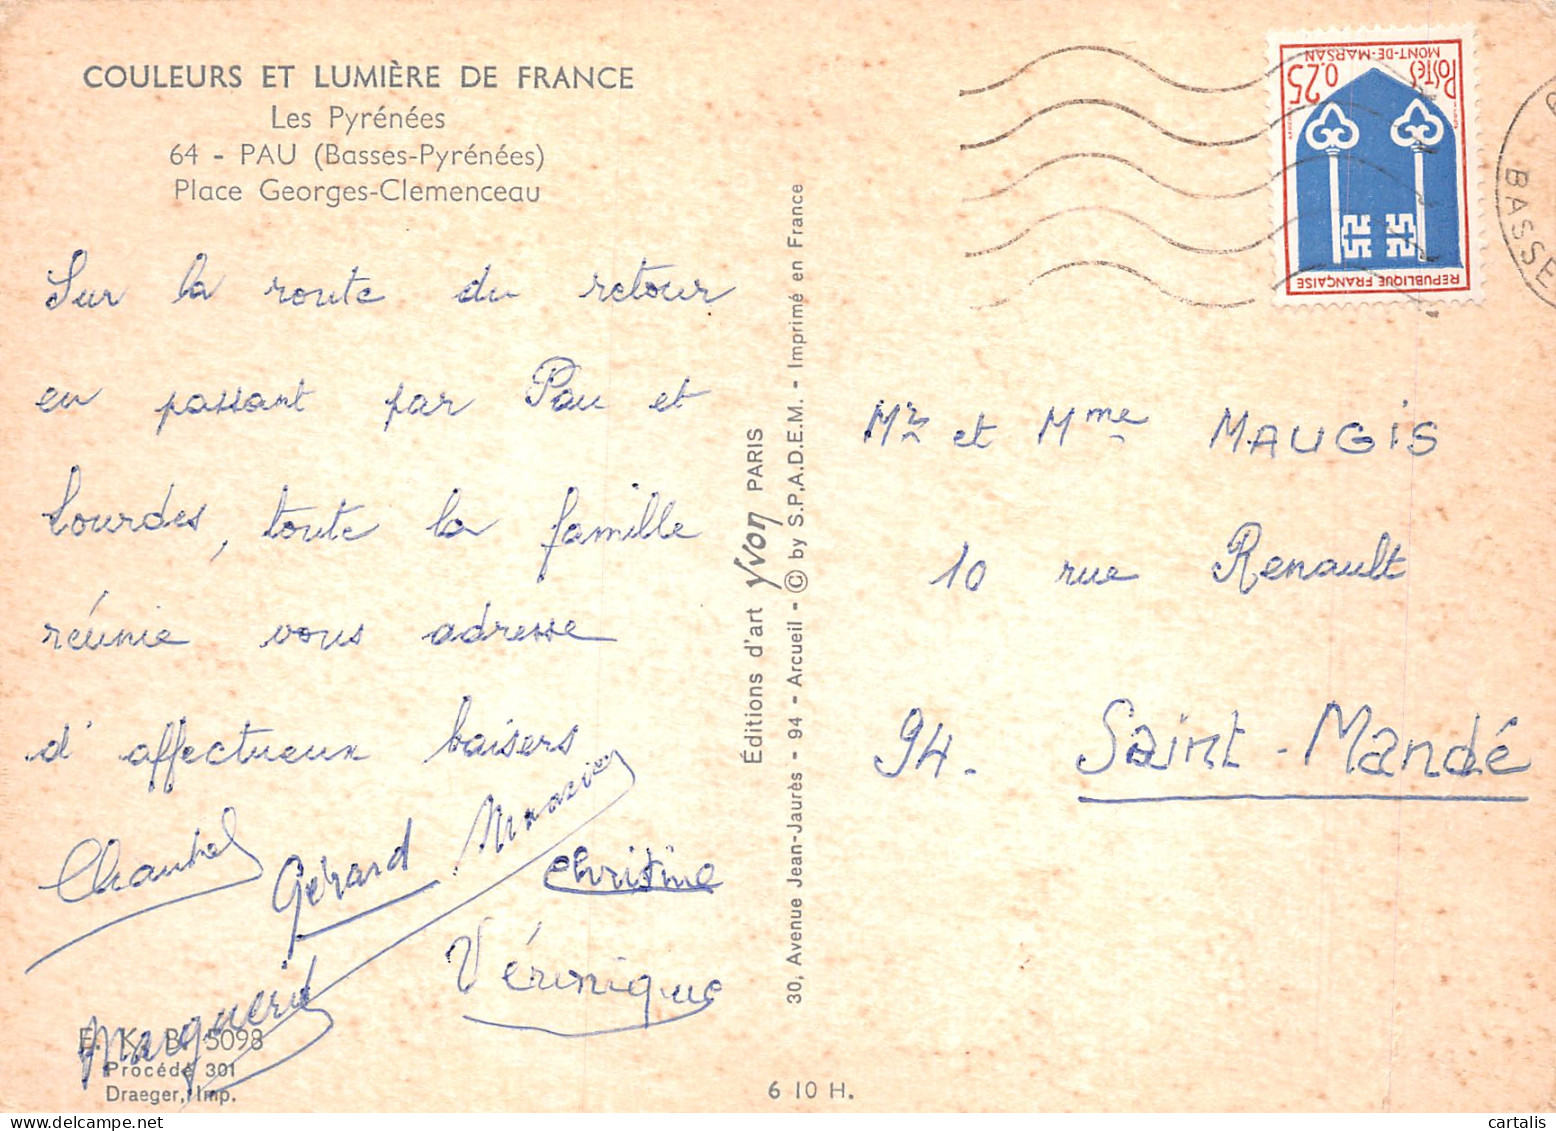 COULEURS ET LUMIÈRE DE FRANCE
Les Pyrénées
64 - PAU (Basses-Pyrénées)
Place Georges-Clemenceau
Sur la route du retour
en passant par Pau et
Lourdes, toute la famille
réunie vous adresse
d'affectueux baisers
Chantal
Gérard
Christine
Véronique
E. K. B. 5098
Procédé 301
Draeger, Imp.
Éditions d'art yvon PARIS
30, Avenue Jean-Jaurès - 94 - Arcueil - © by S.P.A.D.E.M. - Imprimé en France
6 10 H.
POSTES 0.25
MONT-DE-MARSAN
REPUBLIQUE FRANÇAISE
BASSE
Mr et Mme MAUGIS
10 rue Renault
94. Saint-Mandé
cartalis